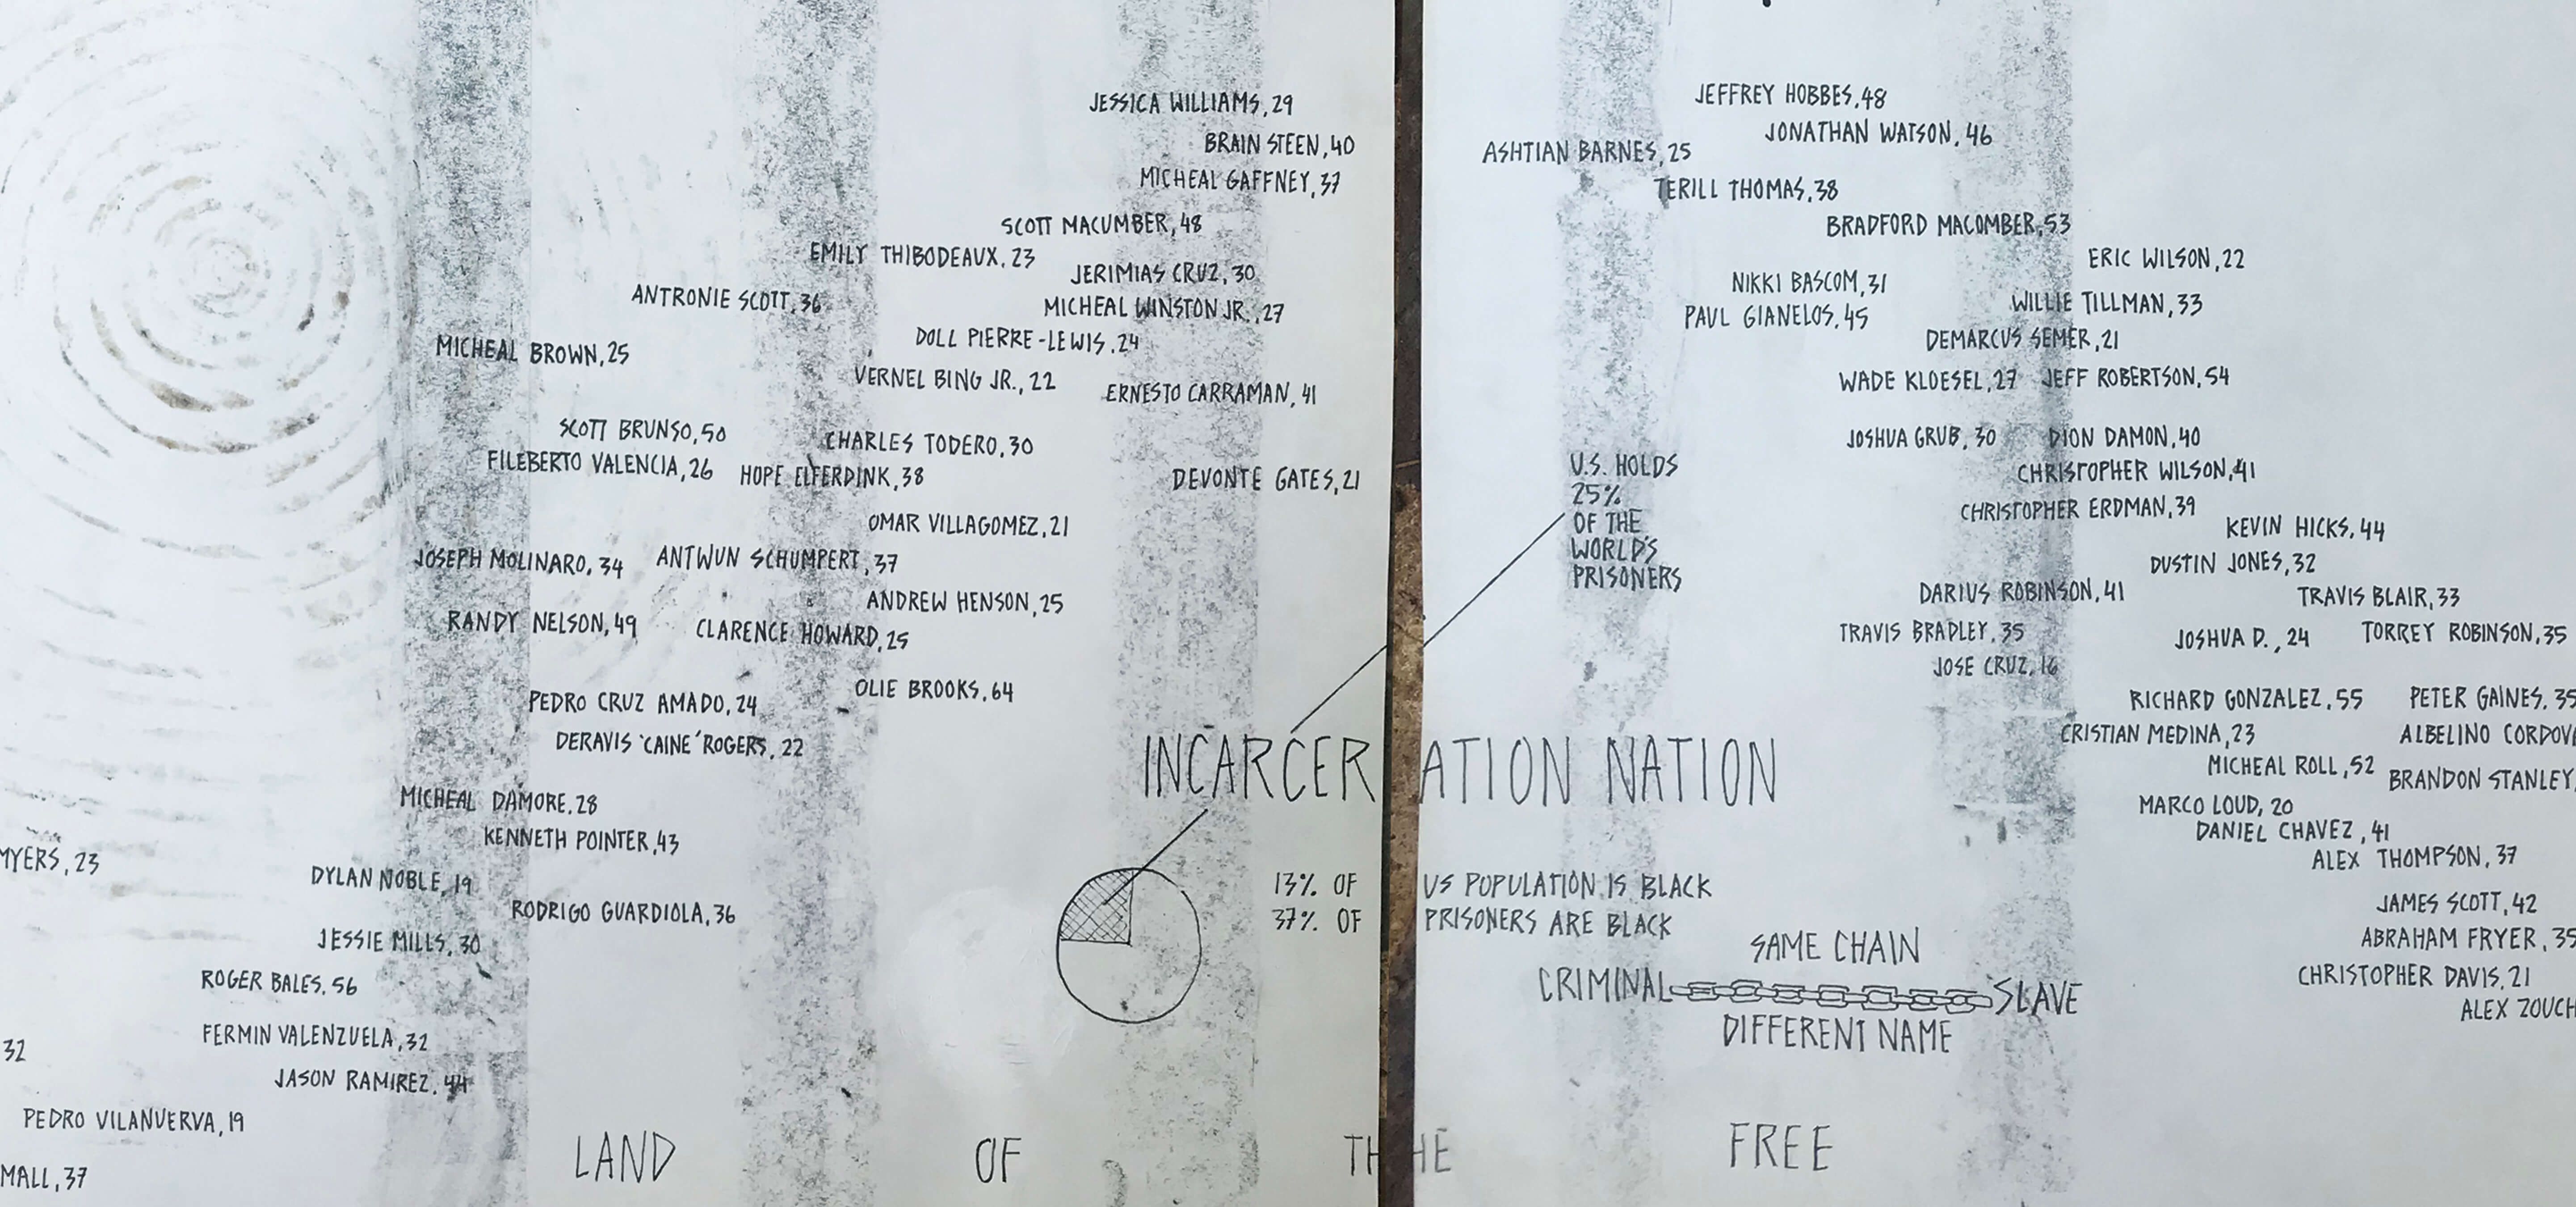 JESSICA WILLIAMS, 29
BRAIN STEEN, 40
MICHEAL GAFFNEY, 37
SCOTT MACUMBER, 48
EMILY THIBODEAUX, 23
JERIMIAS CRUZ, 30
ANTRONIE SCOTT, 36
MICHEAL WINSTON JR., 27
DOLL PIERRE-LEWIS, 24
MICHEAL BROWN, 25
VERNEL BING JR., 22
ERNESTO CARRAMAN, 41
SCOTT BRUNSO, 50
CHARLES TODERO, 30
FILEBERTO VALENCIA, 26
HOPE ELFERDINK, 38
DEVONTE GATES, 21
OMAR VILLAGOMEZ, 21
JOSEPH MOLINARO, 34
ANTWUN SCHUMPERT, 37
ANDREW HENSON, 25
RANDY NELSON, 49
CLARENCE HOWARD, 25
OLIE BROOKS, 64
PEDRO CRUZ AMADO, 24
DERAVIS 'CAINE' ROGERS, 22
MICHEAL DAMORE, 28
KENNETH POINTER, 43
MYERS, 23
DYLAN NOBLE, 19
RODRIGO GUARDIOLA, 36
JESSIE MILLS, 30
ROGER BALES, 56
FERMIN VALENZUELA, 32
32
JASON RAMIREZ, 44
PEDRO VILANUERVA, 19
MALL, 37
JEFFREY HOBBES, 48
JONATHAN WATSON, 46
ASHTIAN BARNES, 25
TERILL THOMAS, 38
BRADFORD MACOMBER, 53
ERIC WILSON, 22
NIKKI BASCOM, 31
WILLIE TILLMAN, 33
PAUL GIANELOS, 45
DEMARCUS SEMER, 21
WADE KLOESEL, 27
JEFF ROBERTSON, 54
JOSHUA GRUB, 30
DION DAMON, 40
CHRISTOPHER WILSON, 41
CHRISTOPHER ERDMAN, 39
KEVIN HICKS, 44
DUSTIN JONES, 32
DARIUS ROBINSON, 41
TRAVIS BLAIR, 33
TRAVIS BRADLEY, 35
JOSHUA D., 24
TORREY ROBINSON, 35
JOSE CRUZ, 16
RICHARD GONZALEZ, 55
PETER GAINES, 35
CRISTIAN MEDINA, 23
ALBELINO CORDOV
MICHEAL ROLL, 52
BRANDON STANLEY,
MARCO LOUD, 20
DANIEL CHAVEZ, 41
ALEX THOMPSON, 37
JAMES SCOTT, 42
ABRAHAM FRYER, 35
CHRISTOPHER DAVIS, 21
ALEX ZOUCH
U.S. HOLDS
25%
OF THE
WORLD'S
PRISONERS
INCARCERATION NATION
13% OF US POPULATION IS BLACK
37% OF PRISONERS ARE BLACK
SAME CHAIN
CRIMINAL SLAVE
DIFFERENT NAME
LAND OF THHE FREE